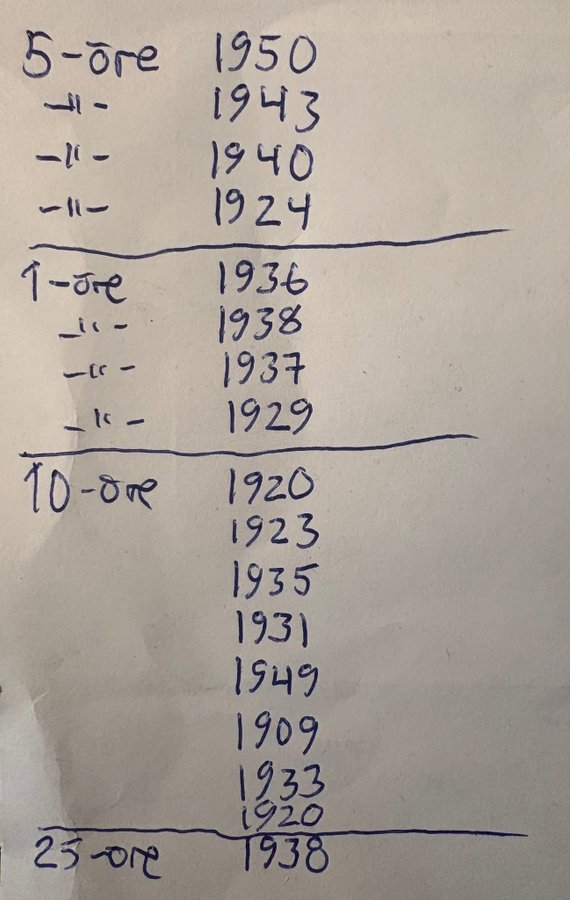 5-öre 1950
-"- 1943
-"- 1940
-"- 1924
1-öre 1936
-"- 1938
-"- 1937
-"- 1929
10-öre 1920
1923
1935
1931
1949
1909
1933
1920
25-öre 1938